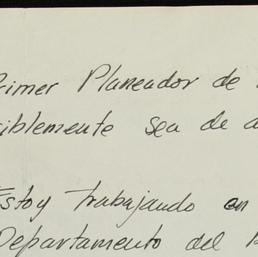 Primer Planeador de
siblemente sea de a
Estoy trabajando en
Departamento del